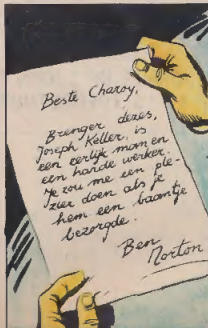 Beste Charoy,
Brenger dezes,
Joseph Keller, is
een eerlijk man en
een harde werker.
Je zou me een ple-
zier doen als je
hem een baantje
bezorgde.
Ben
Morton